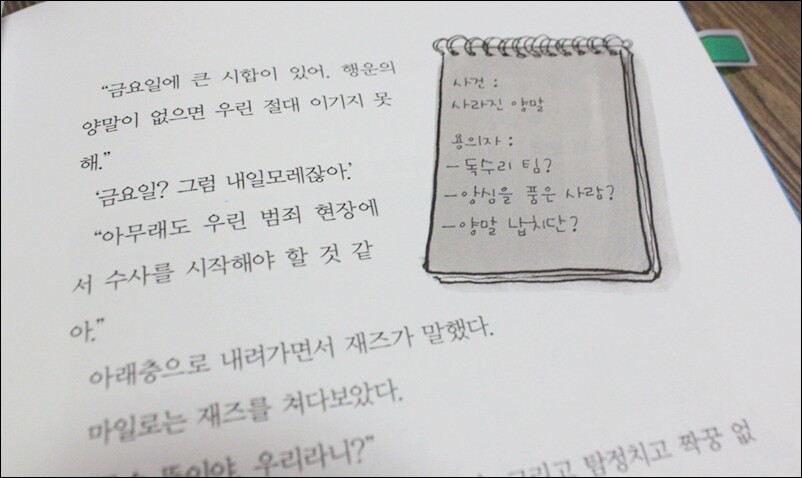 “금요일에 큰 시합이 있어. 행운의
양말이 없으면 우린 절대 이기지 못
해.”
‘금요일? 그럼 내일모레잖아.’
“아무래도 우린 범죄 현장에
서 수사를 시작해야 할 것 같
아.”
사건 :
사라진 양말
용의자 :
-독수리 팀?
-앙심을 품은 사람?
-양말 납치단?
아래층으로 내려가면서 재즈가 말했다.
마일로는 재즈를 쳐다보았다.
뜻이야, 우리라니?”
그리고 탐정치고 짝꿍 없